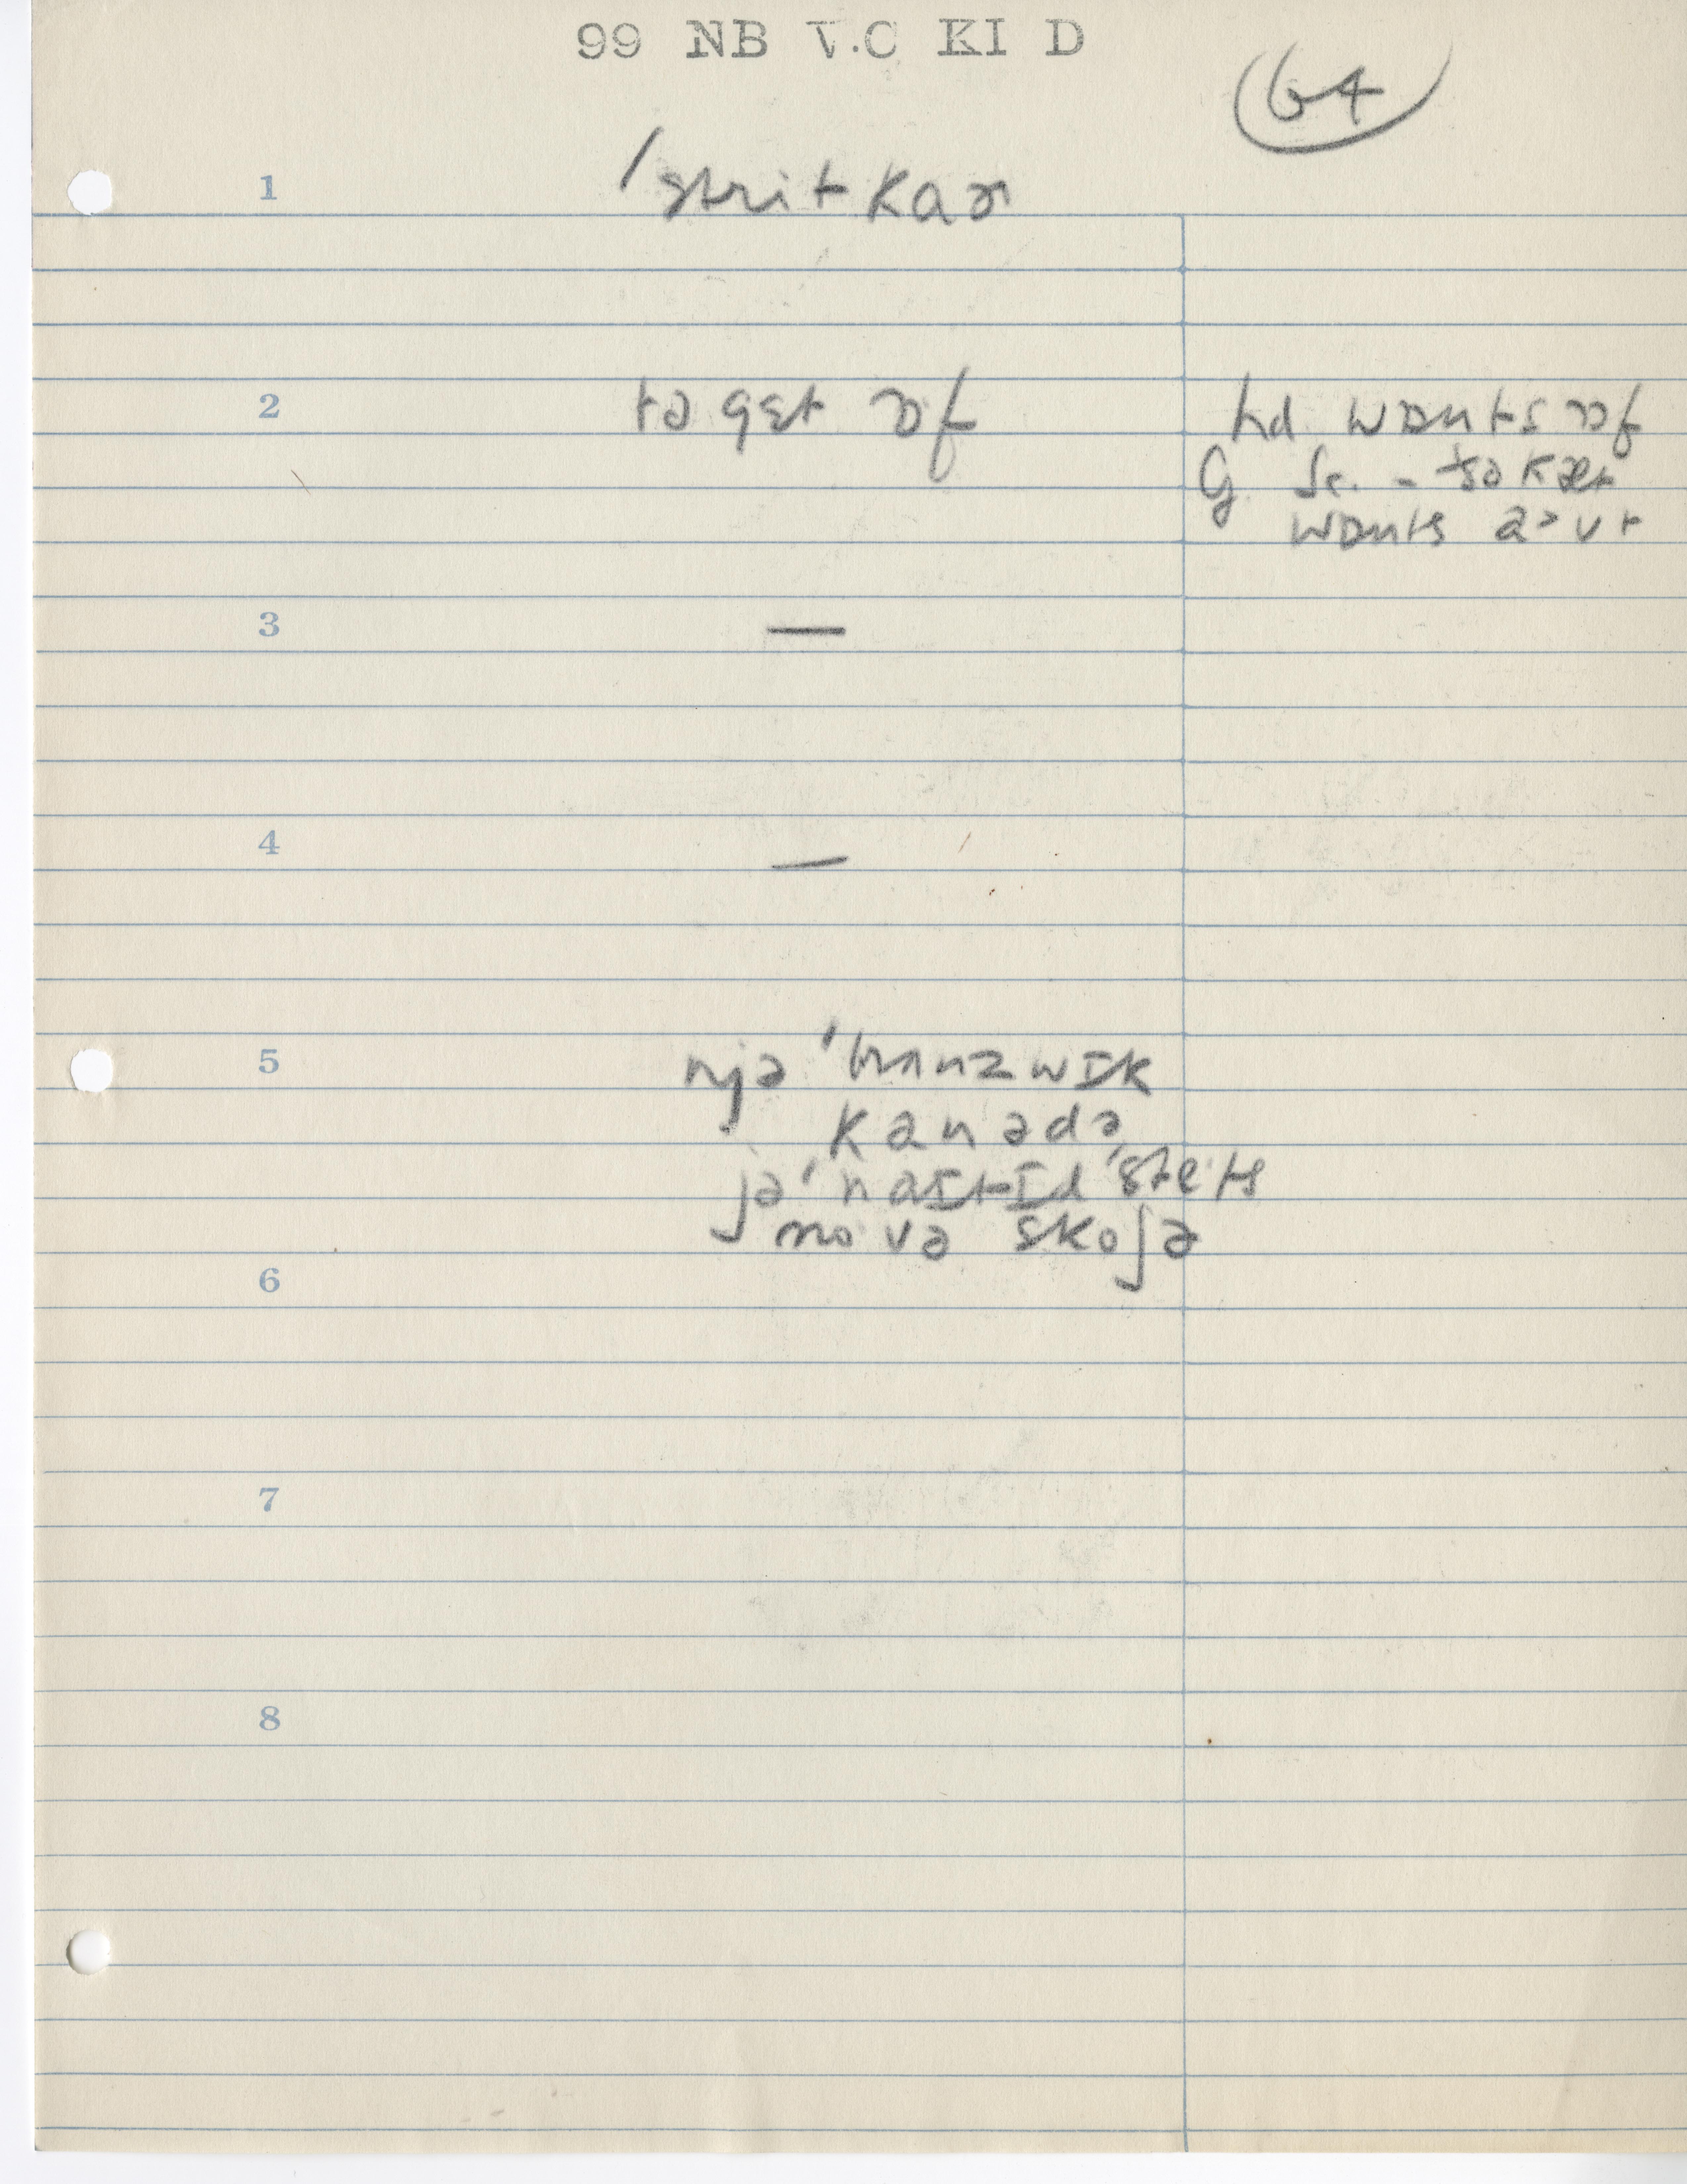 99 NB V.C KI D
64
1 ˈstritkar
2 tə gɛt ɒf
hd. wɒnts ɒf
G Sc. - ðə kæt
wɒnts aʊt
3 —
4 —
5 njə ˈbrʌnzwɪk
kanədə
jəˈnaɪtɪd ˈsteˑts
noˑvə skoʃə
6
7
8